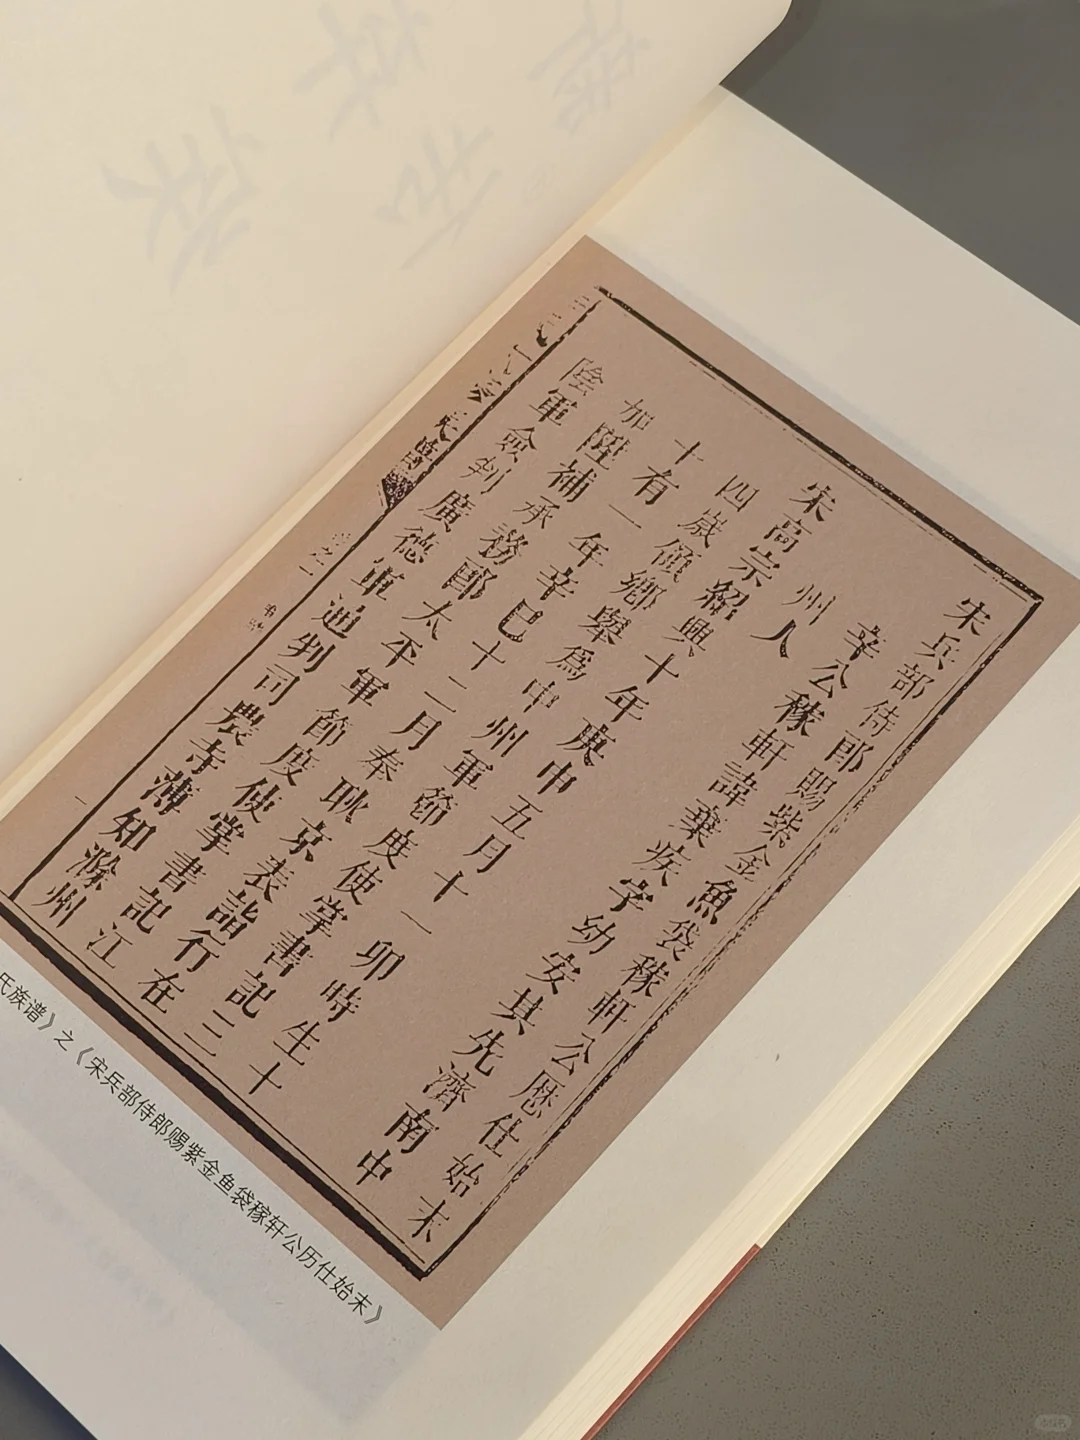 宋兵部侍郎賜紫金魚袋稼軒公厯仕始末
辛公稼軒諱棄疾字幼安其先濟南中
州人
宋高宗紹興十年庚申五月十一卯時生十
四歲領鄉舉爲申州軍節度使掌書記三
十有一年辛巳十二月奉耿京表詣行在
加陞補承務郎太平軍節度使掌書記江
陰軍僉判廣德軍通判司農寺薄知滁州
氏族谱》之《宋兵部侍郎赐紫金鱼袋稼轩公历仕始末》